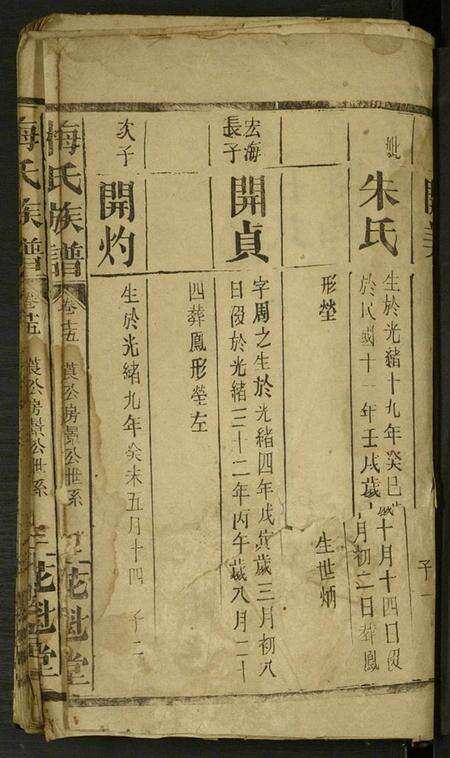 妣
朱氏
生於光緒十九年癸巳歲十月十四日歿
於民國十一年壬戌歲 月初二日葬鳳
形塋
子一
生世炳
宏海
長子
開貞
字周之生於光緒四年戊寅歲三月初八
日歿於光緒三十二年丙午歲八月二十
四葬鳳形塋左
次子
開灼
生於光緒九年癸未五月十四 子二
梅氏族譜
卷十五
公房景公世系
花魁堂
梅氏族譜
卷十五
公房景公世系
花魁堂